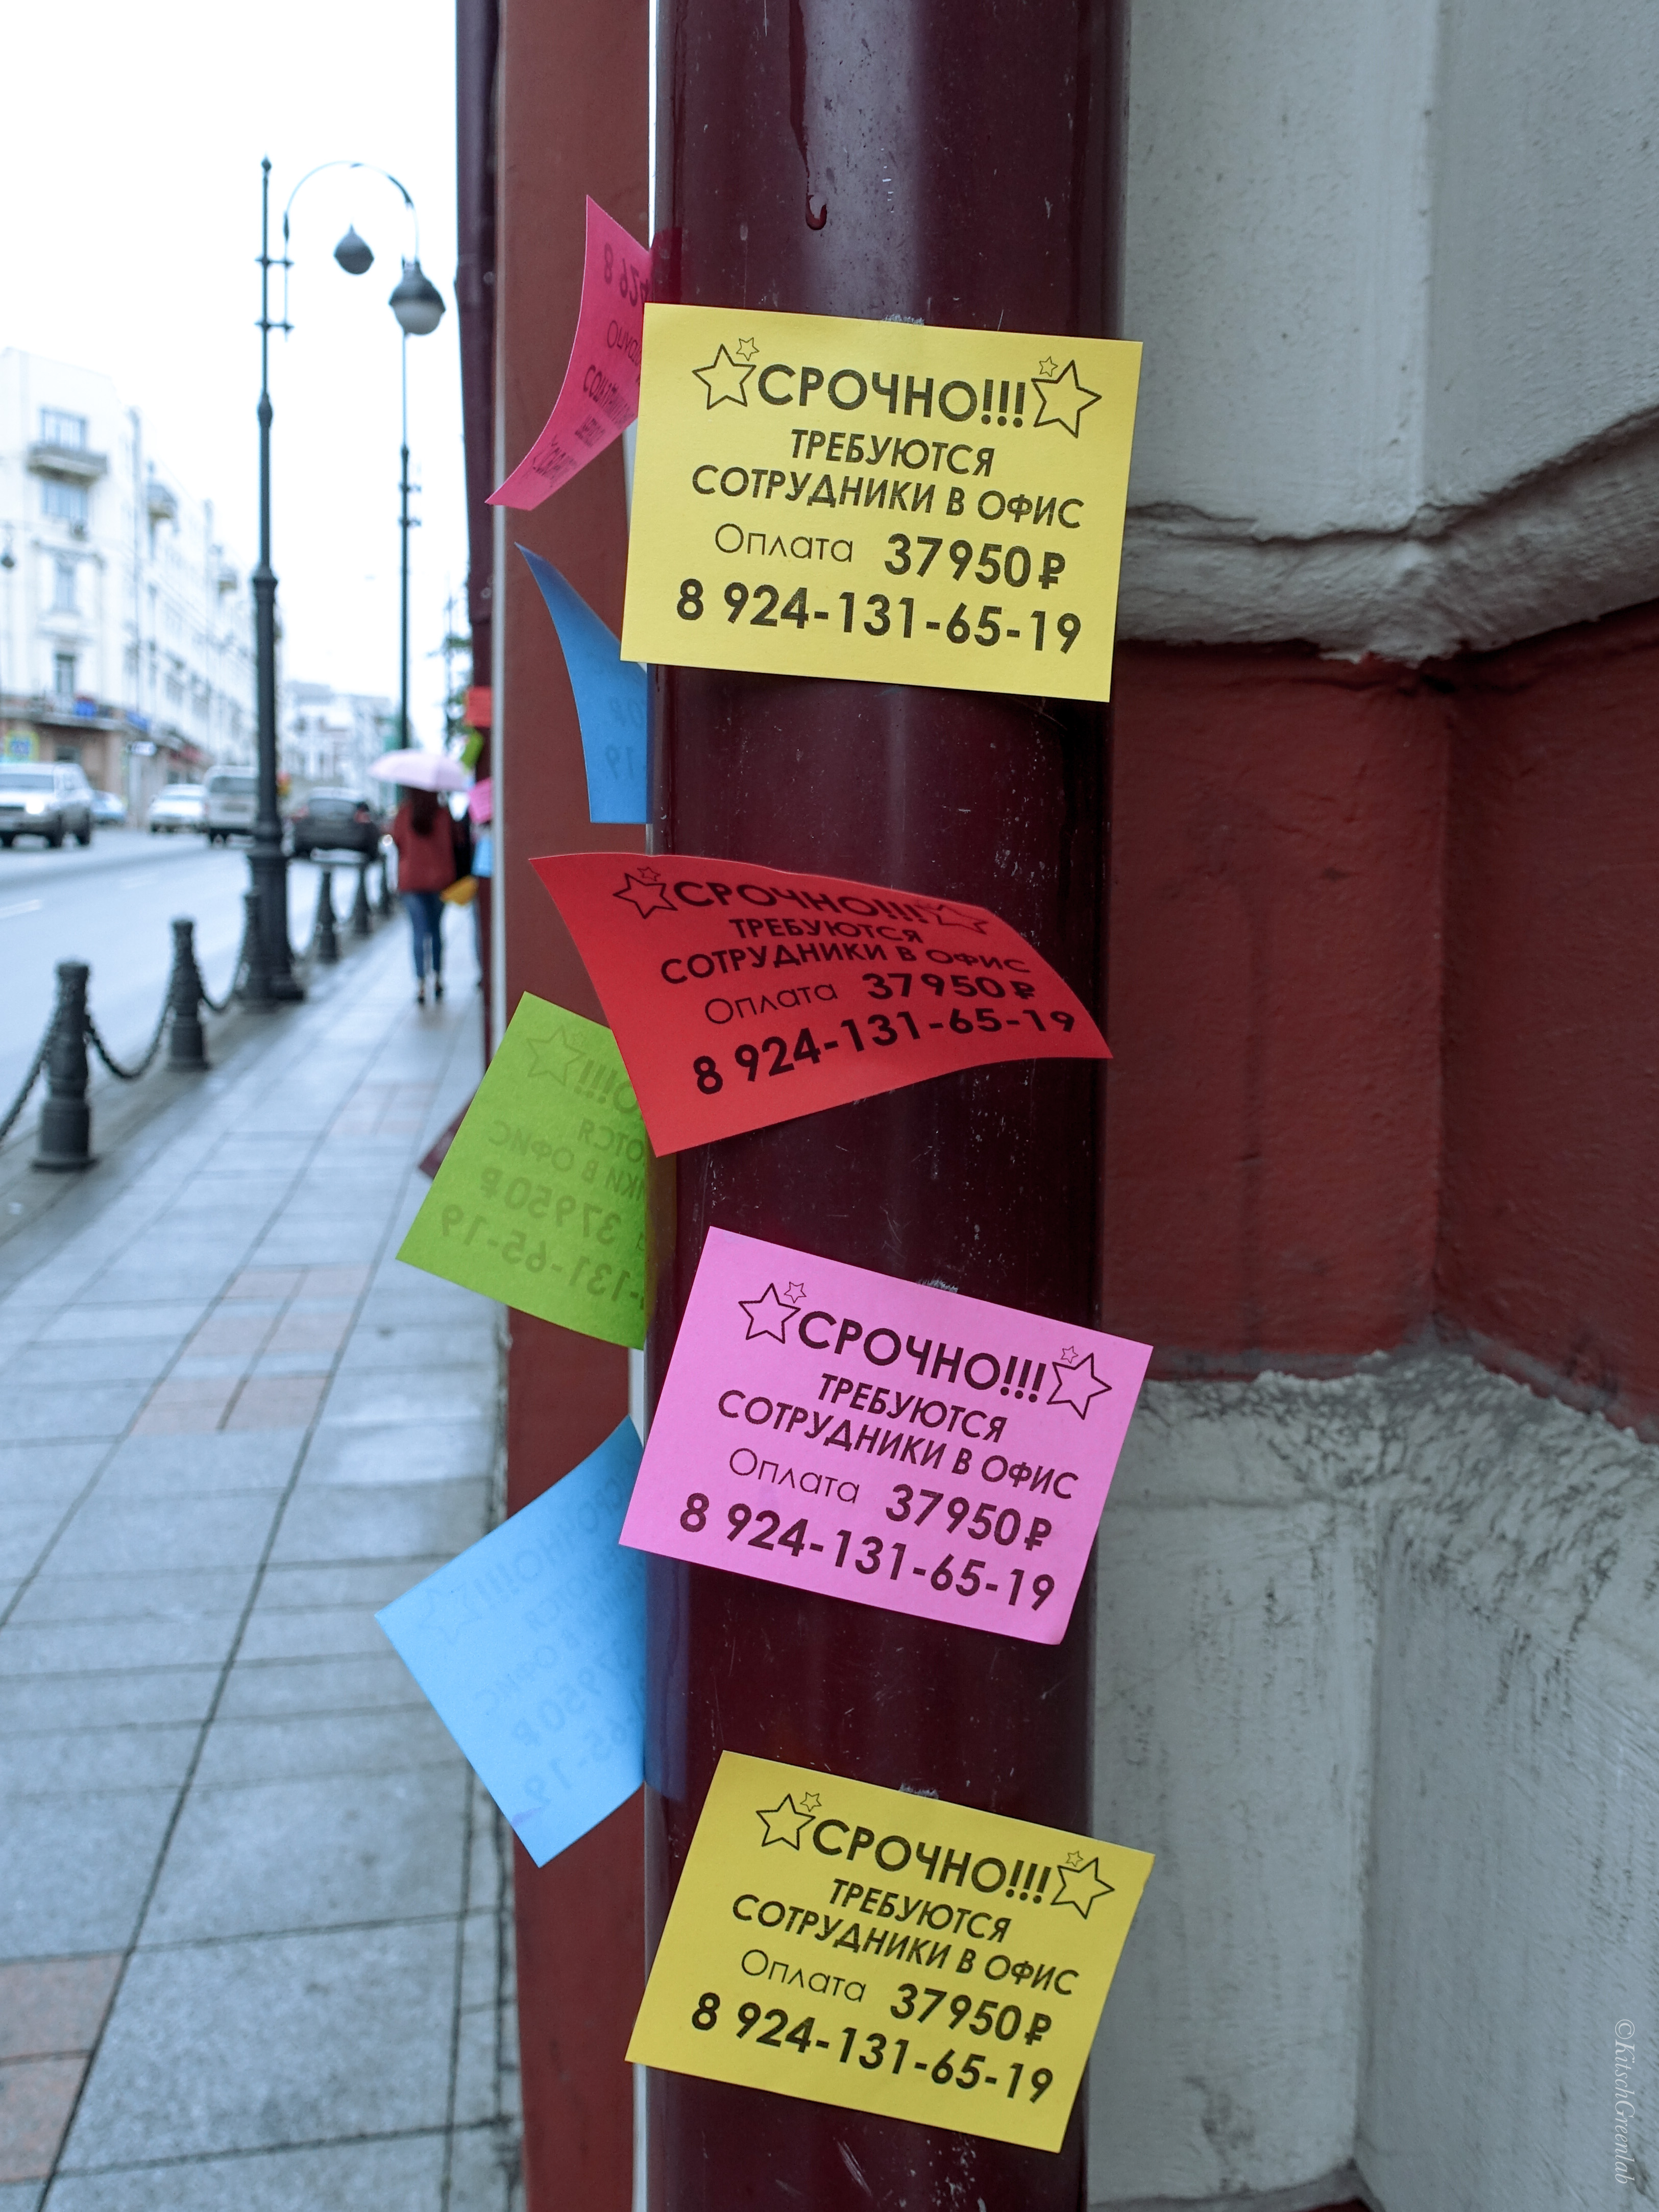 СРОЧНО!!!
ТРЕБУЮТСЯ
СОТРУДНИКИ В ОФИС
Оплата 37950₽
8 924-131-65-19
СРОЧНО!!!
ТРЕБУЮТСЯ
СОТРУДНИКИ В ОФИС
Оплата 37950₽
8 924-131-65-19
СРОЧНО!!!
ТРЕБУЮТСЯ
СОТРУДНИКИ В ОФИС
Оплата 37950₽
8 924-131-65-19
СРОЧНО!!!
ТРЕБУЮТСЯ
СОТРУДНИКИ В ОФИС
Оплата 37950₽
8 924-131-65-19
©KitschGreenlab